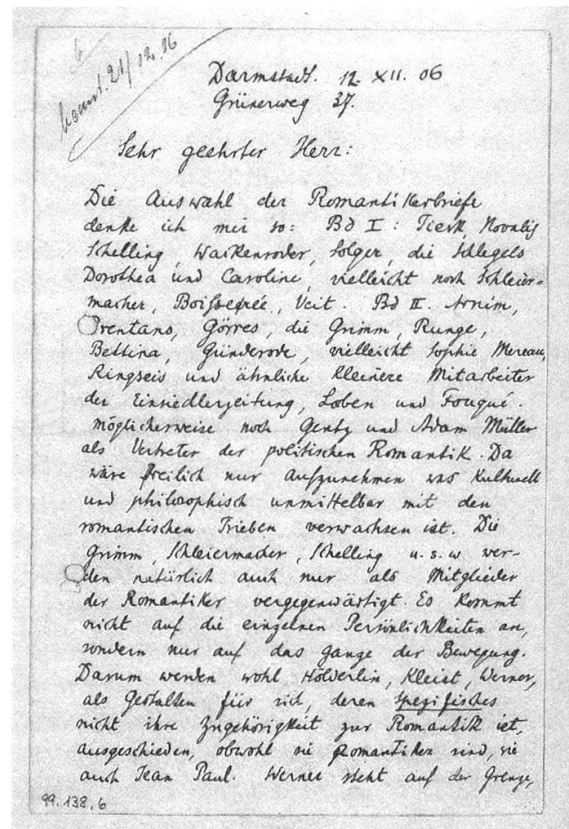 6
beantw. 21/12.06
Darmstadt. 12. XII. 06
Grünerweg 37.
Sehr geehrter Herr:
Die Auswahl der Romantikerbriefe
denke ich mir so: Bd I: Tieck, Novalis
Schelling, Wackenroder, Solger, die Schlegels
Dorothea und Caroline, vielleicht noch Schleier-
macher, Boisserée, Veit. Bd II. Arnim,
Brentano, Görres, die Grimm, Runge,
Bettina, Günderode, vielleicht Sophie Mereau,
Ringseis und ähnliche kleinere Mitarbeiter
der Einsiedlerzeitung, Loben und Fouqué.
möglicherweise noch Gentz und Adam Müller
als Vertreter der politischen Romantik. Da
wäre freilich nur aufzunehmen was kulturell
und philosophisch unmittelbar mit den
romantischen Trieben verwachsen ist. Die
Grimm, Schleiermacher, Schelling u.s.w. wer-
den natürlich auch nur als Mitglieder
der Romantiker vergegenwärtigt. Es kommt
nicht auf die einzelnen Persönlichkeiten an,
sondern nur auf das ganze der Bewegung.
Darum werden wohl Hölderlin, Kleist, Werner,
als Gestalten für sich, deren spezifisches
nicht ihre Zugehörigkeit zur Romantik ist,
ausgeschieden, obwohl sie Romantiker sind, wie
auch Jean Paul. Werner steht auf der Grenze,
99.138.6